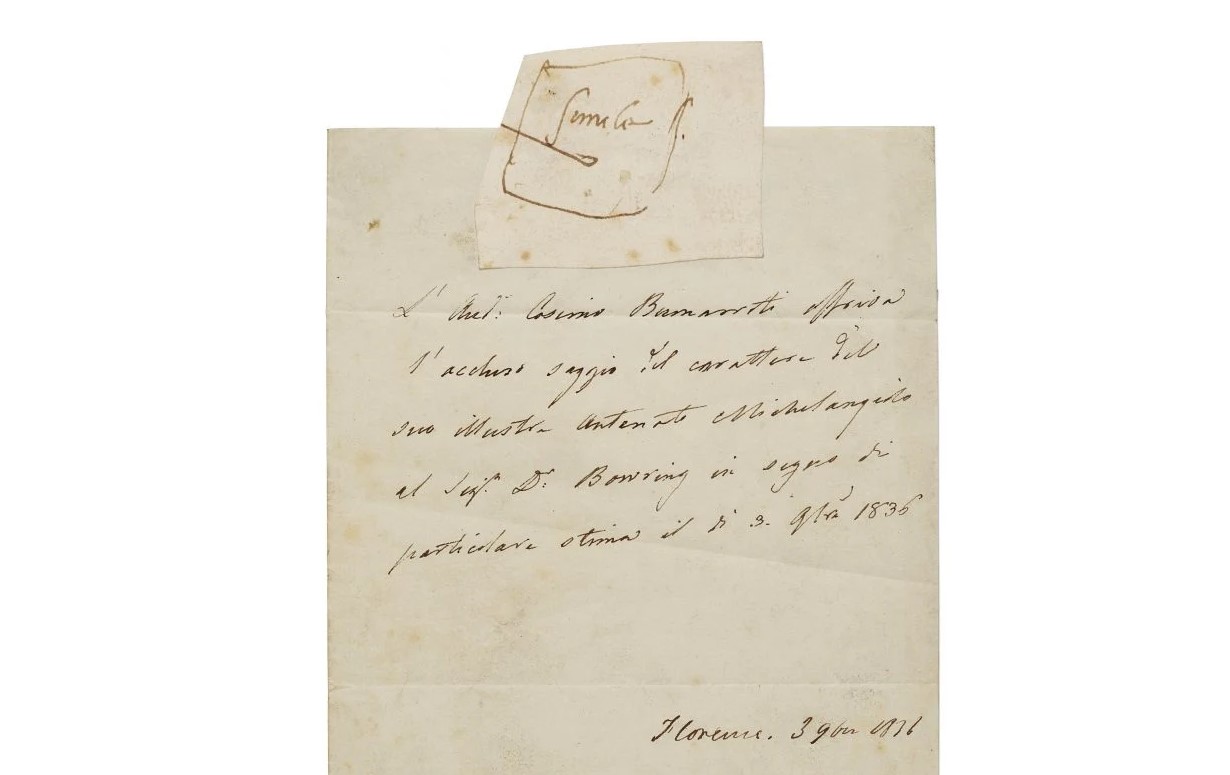 Simile
L' Aud.: Cosimo Buonarroti offriva
l'accluso saggio del carattere del
suo illustre antenato Michelangiolo
al Sigr. Dr. Bowring in segno di
particolare stima il dì 3. 9bre 1836
Florence. 3 9ber 1836